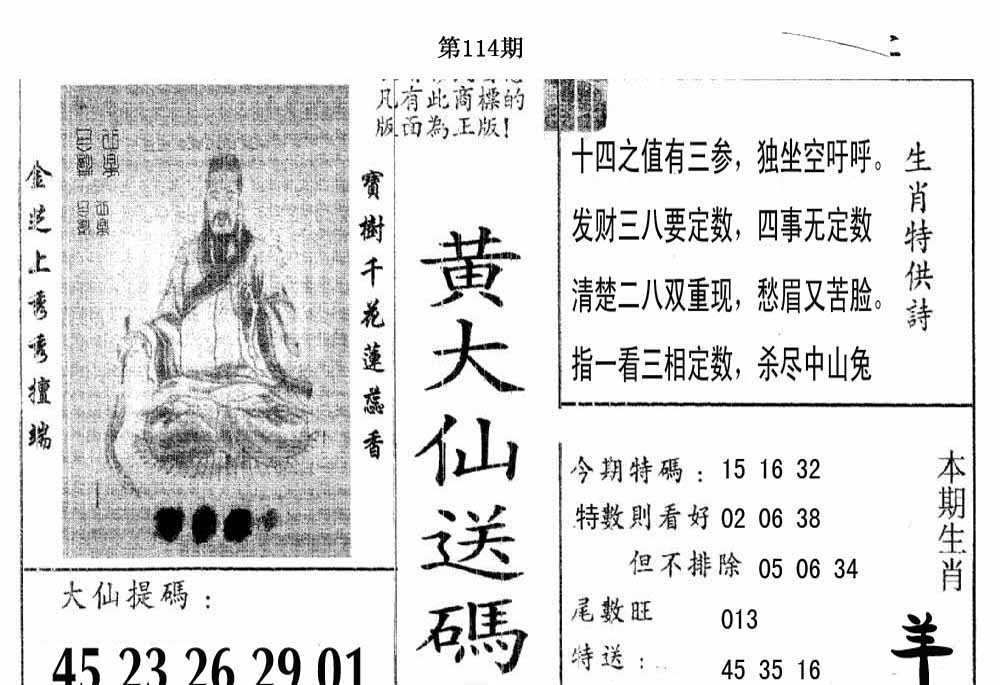 第114期
凡有此商標的
版面為正版!
金芝上秀秀擅端
寶樹千花蓮蕊香
黄大仙送碼
十四之值有三参，独坐空吁呼。
发财三八要定数，四事无定数
清楚二八双重现，愁眉又苦脸。
指一看三相定数，杀尽中山兔
生肖特供詩
今期特碼：15 16 32
特數則看好 02 06 38
但不排除 05 06 34
尾數旺 013
特送： 45 35 16
本期生肖
羊
大仙提碼：
45 23 26 29 01